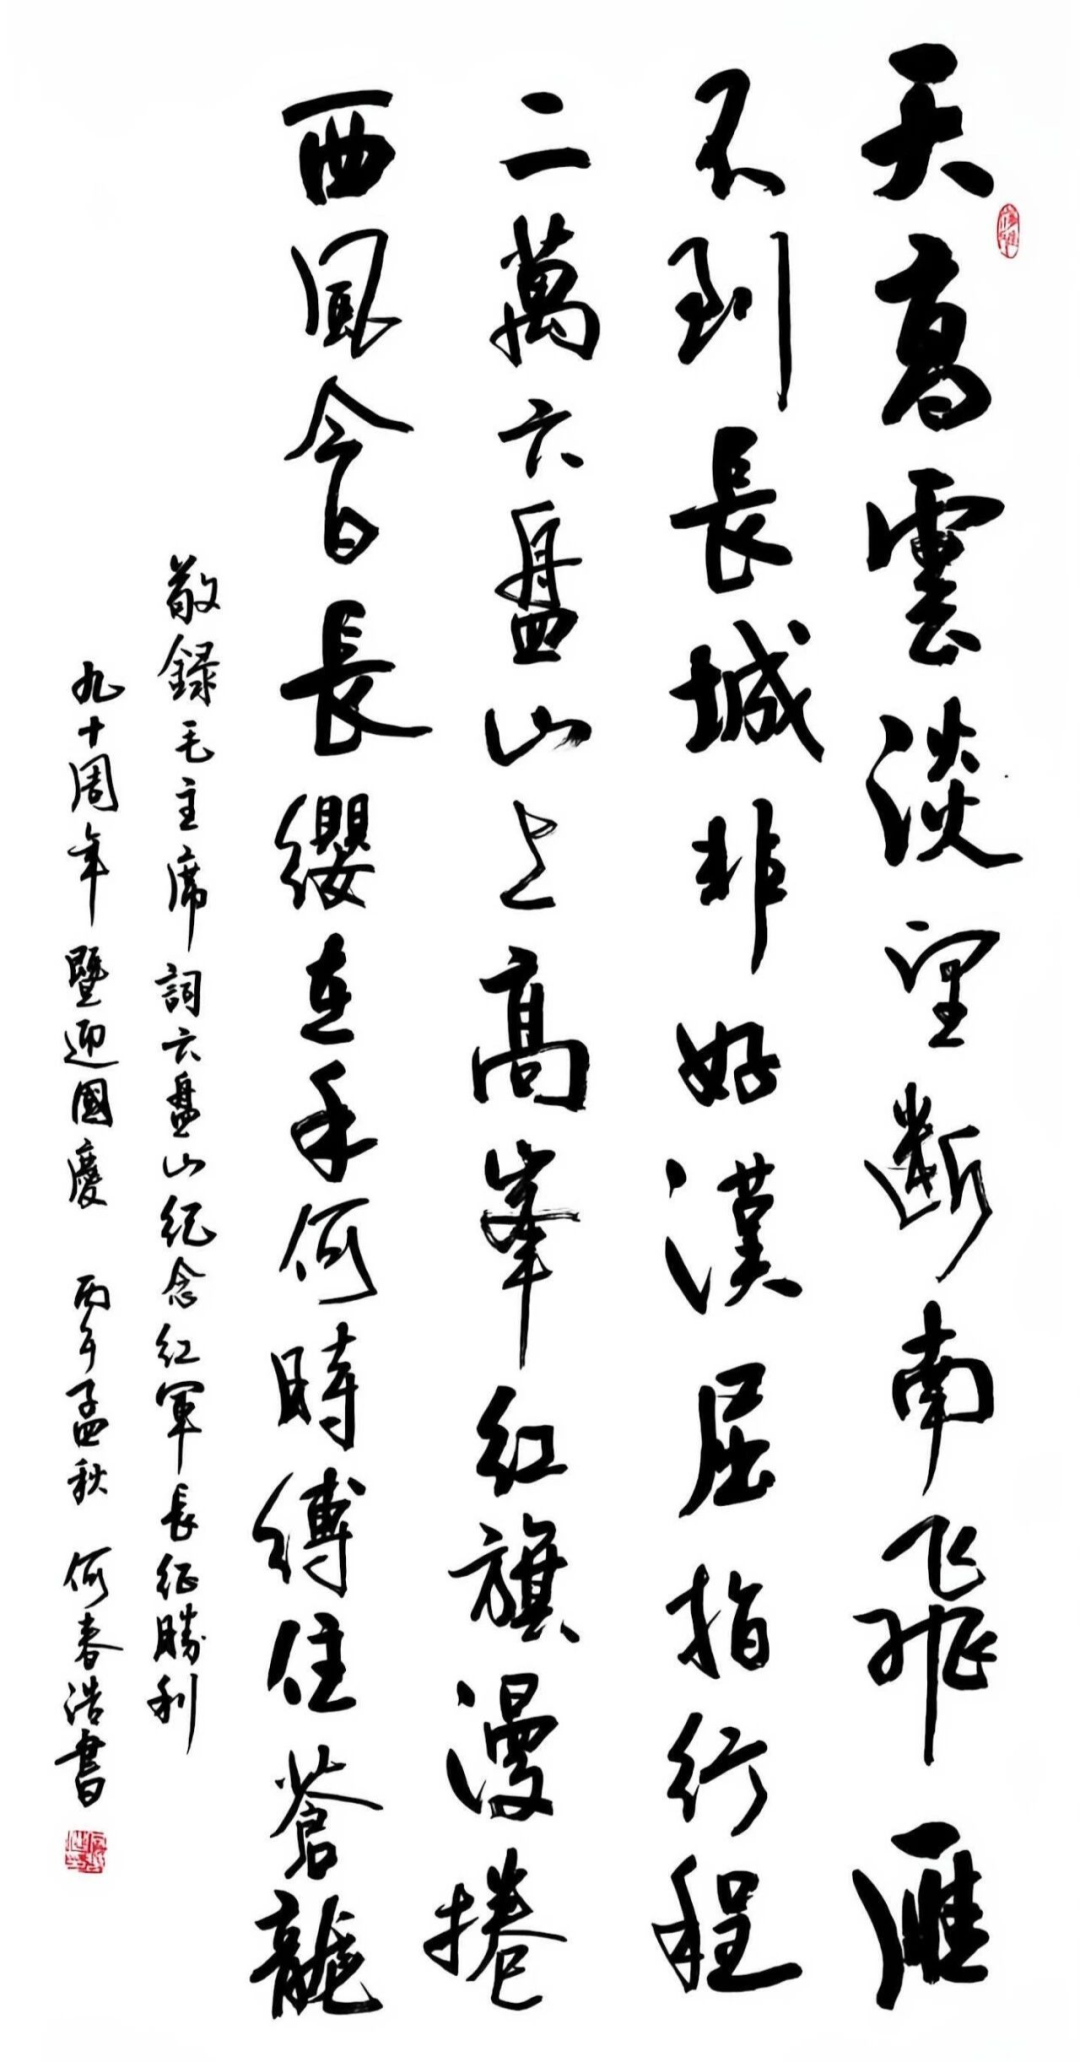 天高雲淡望断南飛雁
不到長城非好漢屈指行程
二萬六盤山上高峯红旗漫捲
西風今日長纓在手何時縛住蒼龍
敬録毛主席詞六盤山纪念红軍長征勝利
九十周年暨迎國慶 丙午孟秋 何春浩書